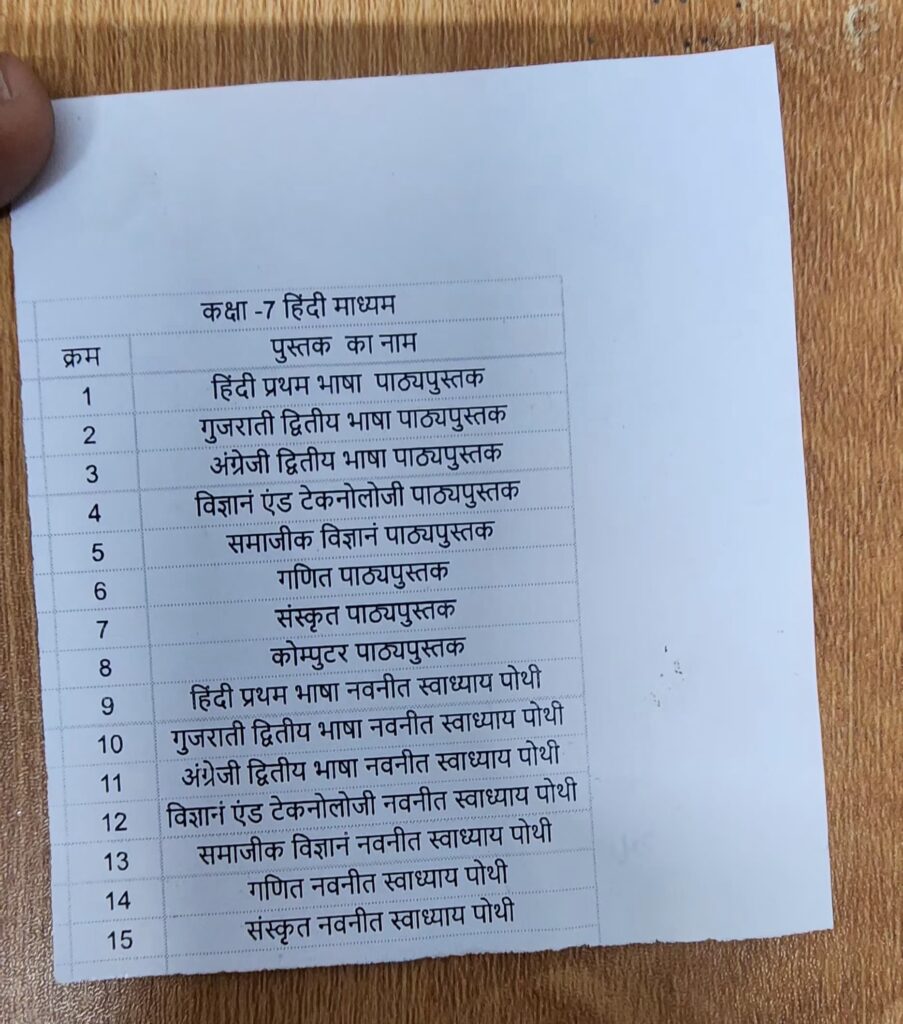 कक्षा -7 हिंदी माध्यम
क्रम पुस्तक का नाम
1 हिंदी प्रथम भाषा पाठ्यपुस्तक
2 गुजराती द्वितीय भाषा पाठ्यपुस्तक
3 अंग्रेजी द्वितीय भाषा पाठ्यपुस्तक
4 विज्ञानं एंड टेकनोलोजी पाठ्यपुस्तक
5 समाजीक विज्ञानं पाठ्यपुस्तक
6 गणित पाठ्यपुस्तक
7 संस्कृत पाठ्यपुस्तक
8 कोम्पुटर पाठ्यपुस्तक
9 हिंदी प्रथम भाषा नवनीत स्वाध्याय पोथी
10 गुजराती द्वितीय भाषा नवनीत स्वाध्याय पोथी
11 अंग्रेजी द्वितीय भाषा नवनीत स्वाध्याय पोथी
12 विज्ञानं एंड टेकनोलोजी नवनीत स्वाध्याय पोथी
13 समाजीक विज्ञानं नवनीत स्वाध्याय पोथी
14 गणित नवनीत स्वाध्याय पोथी
15 संस्कृत नवनीत स्वाध्याय पोथी